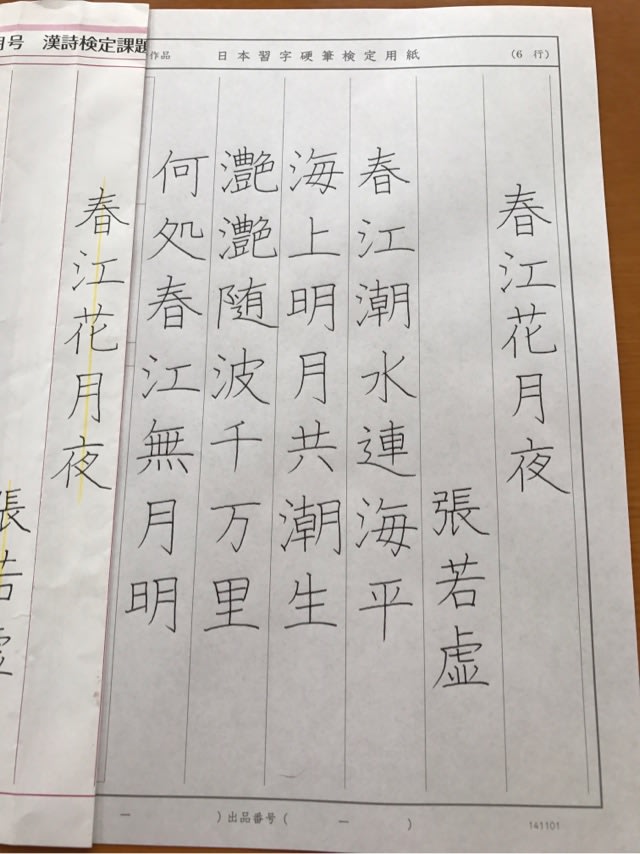 月号 漢詩検定課題
作品 日本習字硬筆検定用紙 (6 行)
春江花月夜
張若虚
春江潮水連海平
海上明月共潮生
灔灔随波千万里
何処春江無月明
春江花月夜
張若虚
一 )出品番号( 一 ) 141101